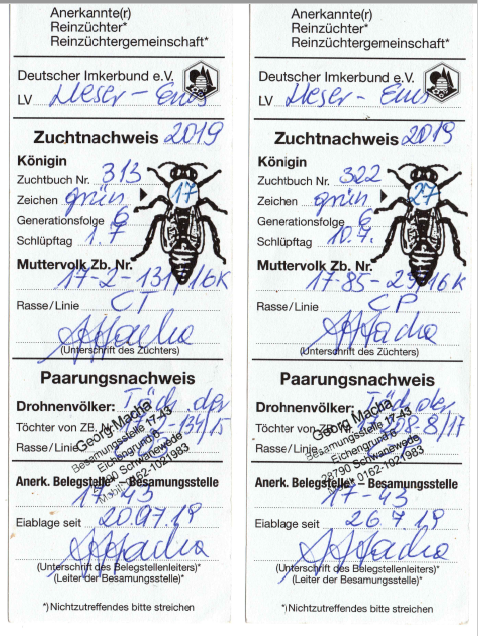 Anerkannte(r)
Reinzüchter*
Reinzüchtergemeinschaft*
Deutscher Imkerbund e.V.
LV Weser-Ems
Zuchtnachweis 2019
Königin
Zuchtbuch Nr. 313
Zeichen grün 17
Generationsfolge 6
Schlüpftag 1.7
Muttervolk Zb. Nr.
17-2-131/16K
Rasse/Linie CT
(Unterschrift des Züchters)
Paarungsnachweis
Drohnenvölker: Töch. der
Töchter von ZB.
Rasse/Linie
Georg Macha
Besamungsstelle 17-43
Eichengrund 6
28790 Schwanewede
Mobil 0162-1021983
Anerk. Belegstelle* - Besamungsstelle
17-43
Eiablage seit 20.07.19
(Unterschrift des Belegstellenleiters)*
(Leiter der Besamungsstelle)*
*)Nichtzutreffendes bitte streichen
Anerkannte(r)
Reinzüchter*
Reinzüchtergemeinschaft*
Deutscher Imkerbund e.V.
LV Weser-Ems
Zuchtnachweis 2019
Königin
Zuchtbuch Nr. 322
Zeichen grün 27
Generationsfolge 6
Schlüpftag 10.7.
Muttervolk Zb. Nr.
17-85-23/16K
Rasse/Linie CP
(Unterschrift des Züchters)
Paarungsnachweis
Drohnenvölker: Töch. der
Töchter von
Rasse/Linie
Georg Macha
Besamungsstelle 17-43
Eichengrund 6
28790 Schwanewede
0162-1021983
Anerk. Belegstelle* - Besamungsstelle
17-43
Eiablage seit 26.7.19
(Unterschrift des Belegstellenleiters)*
(Leiter der Besamungsstelle)*
*)Nichtzutreffendes bitte streichen